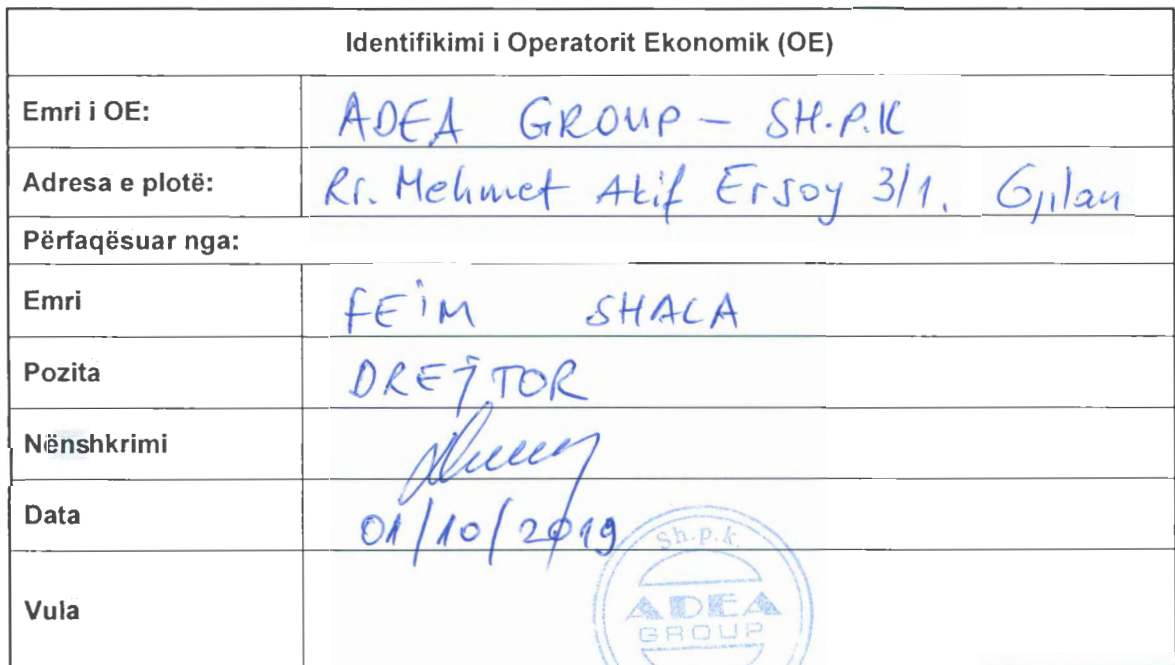 Identifikimi i Operatorit Ekonomik (OE)
Emri i OE: ADEA GROUP – SH.P.K
Adresa e plotë: Rr. Mehmet Akif Ersoy 3/1. Gjilan
Përfaqësuar nga:
Emri FEiM SHALA
Pozita DREJTOR
Nënshkrimi
Data 01/10/2019
Vula
Sh.p.k.
ADEA
GROUP